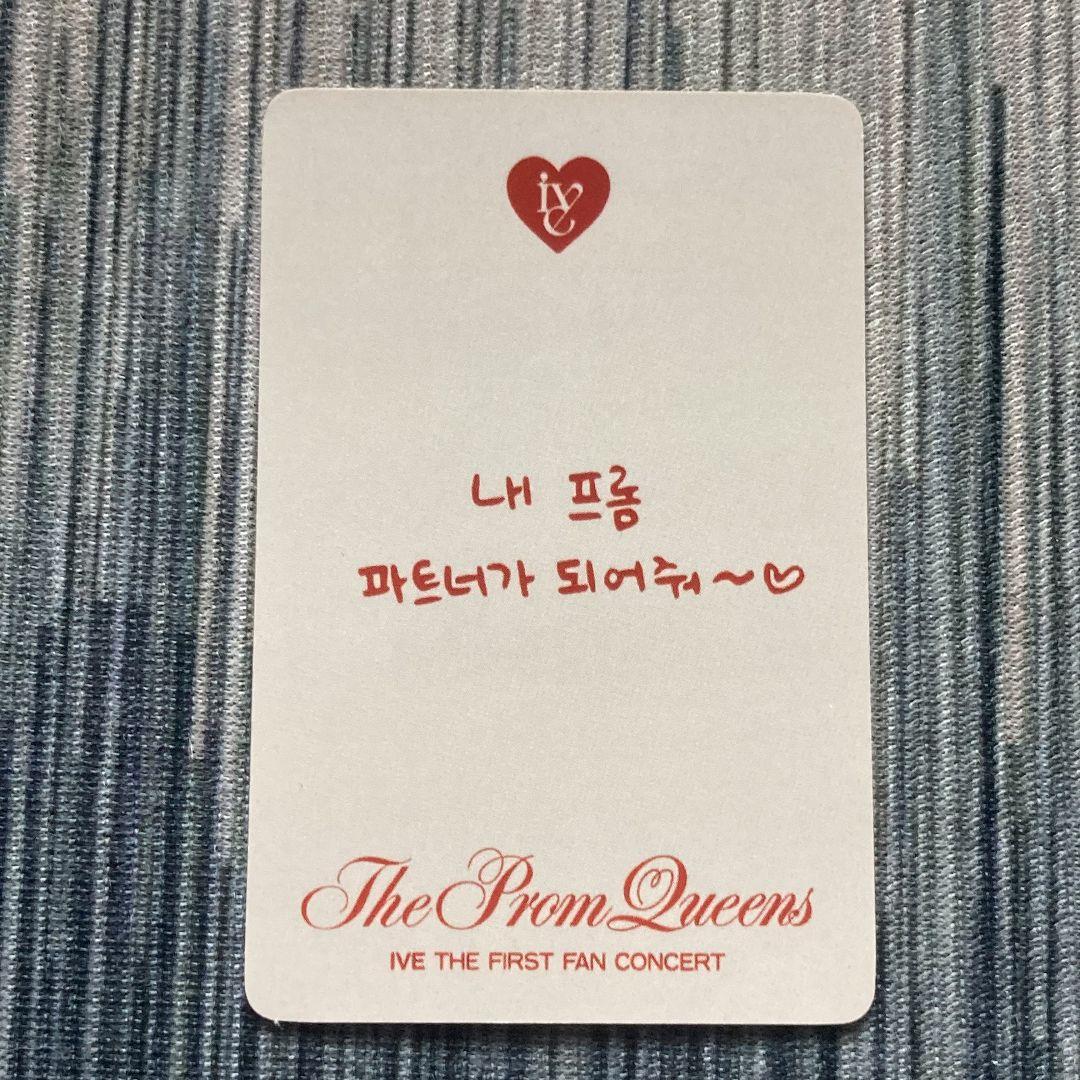 ive
내 프롬
파트너가 되어줘~♡
The Prom Queens
IVE THE FIRST FAN CONCERT